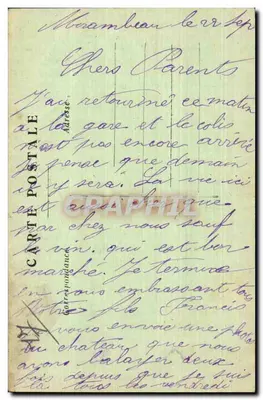 Mirambeau le 22 Sept
Chers Parents
J'ai retourné ce matin
a la gare et le colis
n'est pas encore arrivé
je pense que demain
il y sera. La vie ici
est aussi que
par chez nous sauf
le vin qui est bon
marché. Je termine
en vous embrassant tous
Votre fils Francis
Je vous envoie une photo
du chateau que nous
avons balayer deux
fois depuis que je suis
là tous les vendredi
CARTE POSTALE
Correspondance
Adresse